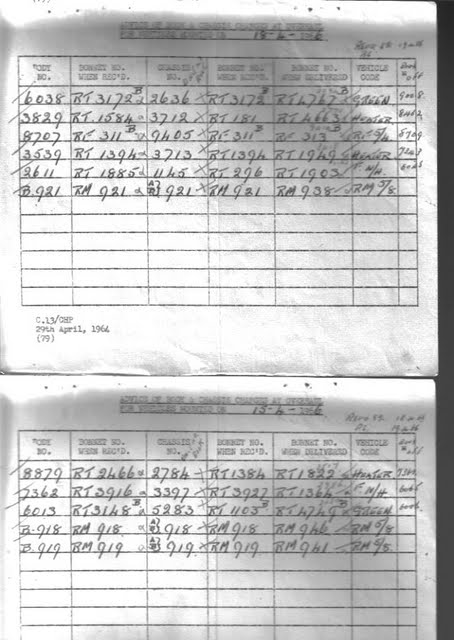 ADVICE OF BODY & CHASSIS CHANGES AT OVERHAUL
FOR VEHICLES MOUNTED ON 18-4-1966
BODY NO. BONNET NO. WHEN REC'D. CHASSIS NO. BONNET NO. WHEN REC'D. BONNET NO. WHEN DELIVERED VEHICLE CODE
6038 RT 3172 B 2636 RT 3172 B RT 4767 GREEN
3829 RT 1584 3712 RT 181 RT 4663 HEATER
8707 RF 311 B 9405 RF 311 B RF 313
3539 RT 1394 3713 RT 1394 RT 1949 HEATER
2611 RT 1885 1145 RT 296 RT 1903
B.921 RM 921 921 RM 921 RM 938 RM 5/8
C.13/CHP
29th April, 1964
(79)
ADVICE OF BODY & CHASSIS CHANGES AT OVERHAUL
FOR VEHICLES MOUNTED ON 15-4-1966
BODY NO. BONNET NO. WHEN REC'D. CHASSIS NO. BONNET NO. WHEN REC'D. BONNET NO. WHEN DELIVERED VEHICLE CODE
8879 RT 2466 2784 RT 1384 RT 1822 HEATER
7362 RT 3916 3397 RT 3927 RT 1364
6013 RT 3148 B 5283 RT 1103 B RT 4749 GREEN
B-918 RM 918 918 RM 918 RM 946 RM 5/8
B.919 RM 919 919 RM 919 RM 941 RM 5/8